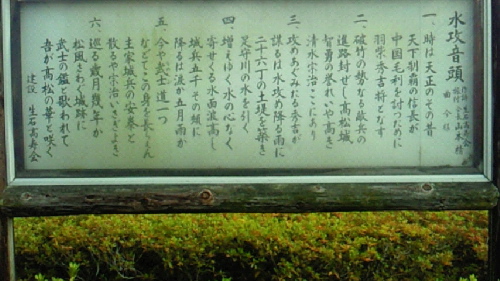 水攻音頭
作詩 生石高寿会
振付
一、時は天正のその昔
天下制覇の信長が
中国毛利を討つために
羽柴秀吉将となす
二、破竹の勢なる敵兵の
進路封ぜし高松城
智勇の誉れいや高き
清水宗治ここにあり
三、攻めあぐみたる秀吉が
謀るは水攻め降る雨に
二十六丁の土堤を築き
足守川の水を引く
四、増えゆく水の心なく
寄せくる水面波高し
城兵五千その頬に
降るは涙か五月雨か
五、今ぞ武士道一つ
などてこの身を長らえん
主家城兵の安泰と
散るや宗治いさぎよき
六、巡る歳月幾年か
松風さわぐ城跡に
武士の鑑と歌われて
吾が高松の華と咲く
建設 生石高寿会